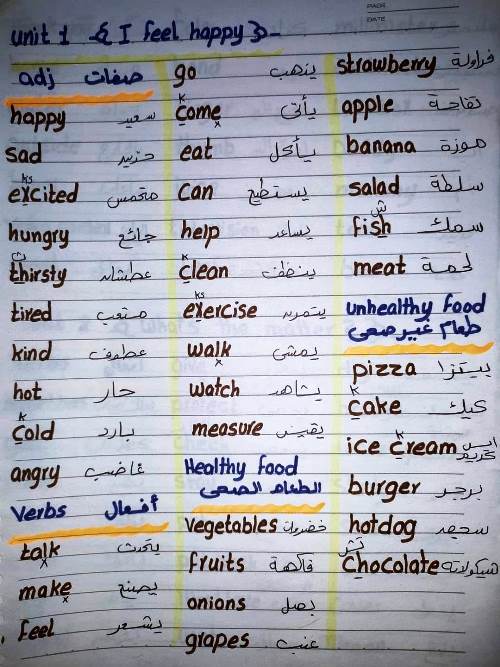 PAGE
DATE
unit 1 { I feel happy }
adj صفات
happy سعيد
sad حزين
ks
excited متحمس
hungry جائع
ث
thirsty عطشان
tired متعب
kind عطوف
hot حار
k
cold بارد
angry غاضب
Verbs أفعال
talk يتحدث
x
make يصنع
x
feel يشعر
go يذهب
k
come يأتى
x
eat يأكل
can يستطيع
help يساعد
k
clean ينظف
ks
exercise يتمرن
walk يمشى
x
watch يشاهد
measure يقيس
Healthy food
الطعام الصحى
vegetables خضروات
fruits فاكهة
onions بصل
grapes عنب
strawberry فراولة
apple تفاحة
banana موزة
salad سلطة
ش
fish سمك
meat لحمة
unhealthy food
طعام غير صحى
pizza بيتزا
k
cake كيك
k
ice cream ايس كريم
burger برجر
hotdog
تش
chocolate شيكولاته